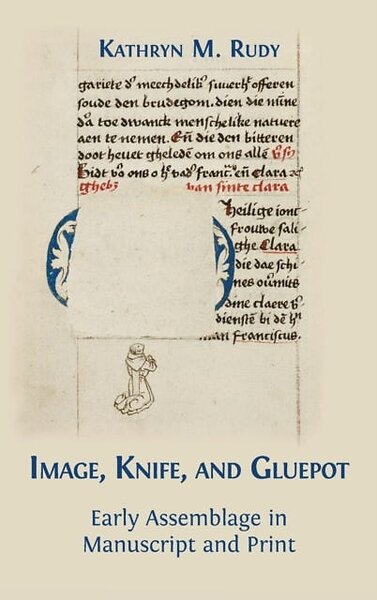 KATHRYN M. RUDY
gariete dʼ meechdelikʼ suuerhʼ offeren
soude den brudegom. dien die mīne
dʼa toe dwanck menschelike natuere
aen te nemen. Eñ die den bitteren
doot heuet gheledē om ons allē
Bidt vʼo ons o hʼ vadʼ francʼ. eñ clara
ghebʒ van sinte clara
Heilige ionc
frouwe sali
ghe Clara
die dae schi
nes oūmits
dine claere
dienstē bi dē hʼ
man franciscus.
IMAGE, KNIFE, AND GLUEPOT
Early Assemblage in
Manuscript and Print